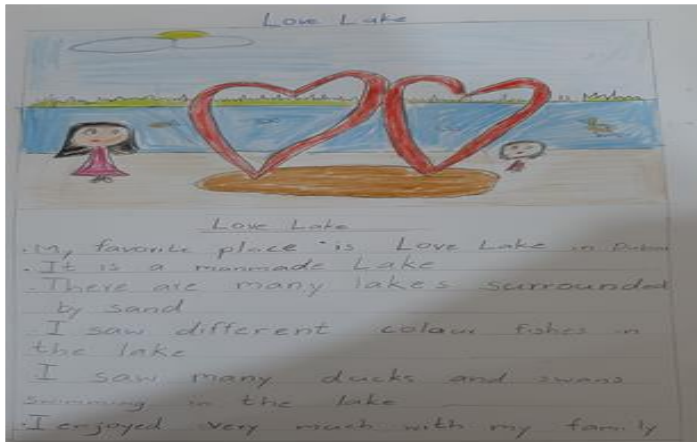 Love Lake
Love Lake
· My favorite place is Love Lake in Dubai
· It is a manmade Lake
· There are many lakes surrounded
by sand
I saw different colour fishes in
the lake
I saw many ducks and swans
swimming in the lake
· I enjoyed very much with my family